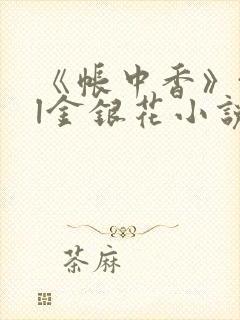 《帐中香》
|金银花小说
茶麻